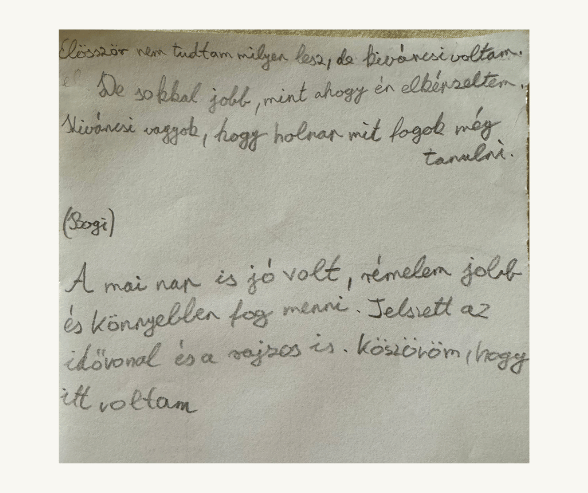 Elösször nem tudtam milyen lesz, de kiváncsi voltam.
De sokkal jobb, mint ahogy én elképzeltem.
Kiváncsi vagyok, hogy holnap mit fogok még
tanulni.
(Bogi)
A mai nap is jó volt, rémelem jobb
és könnyebben fog menni. Jelszett az
idővonal és a rajzos is. Köszöröm, hogy
itt voltam